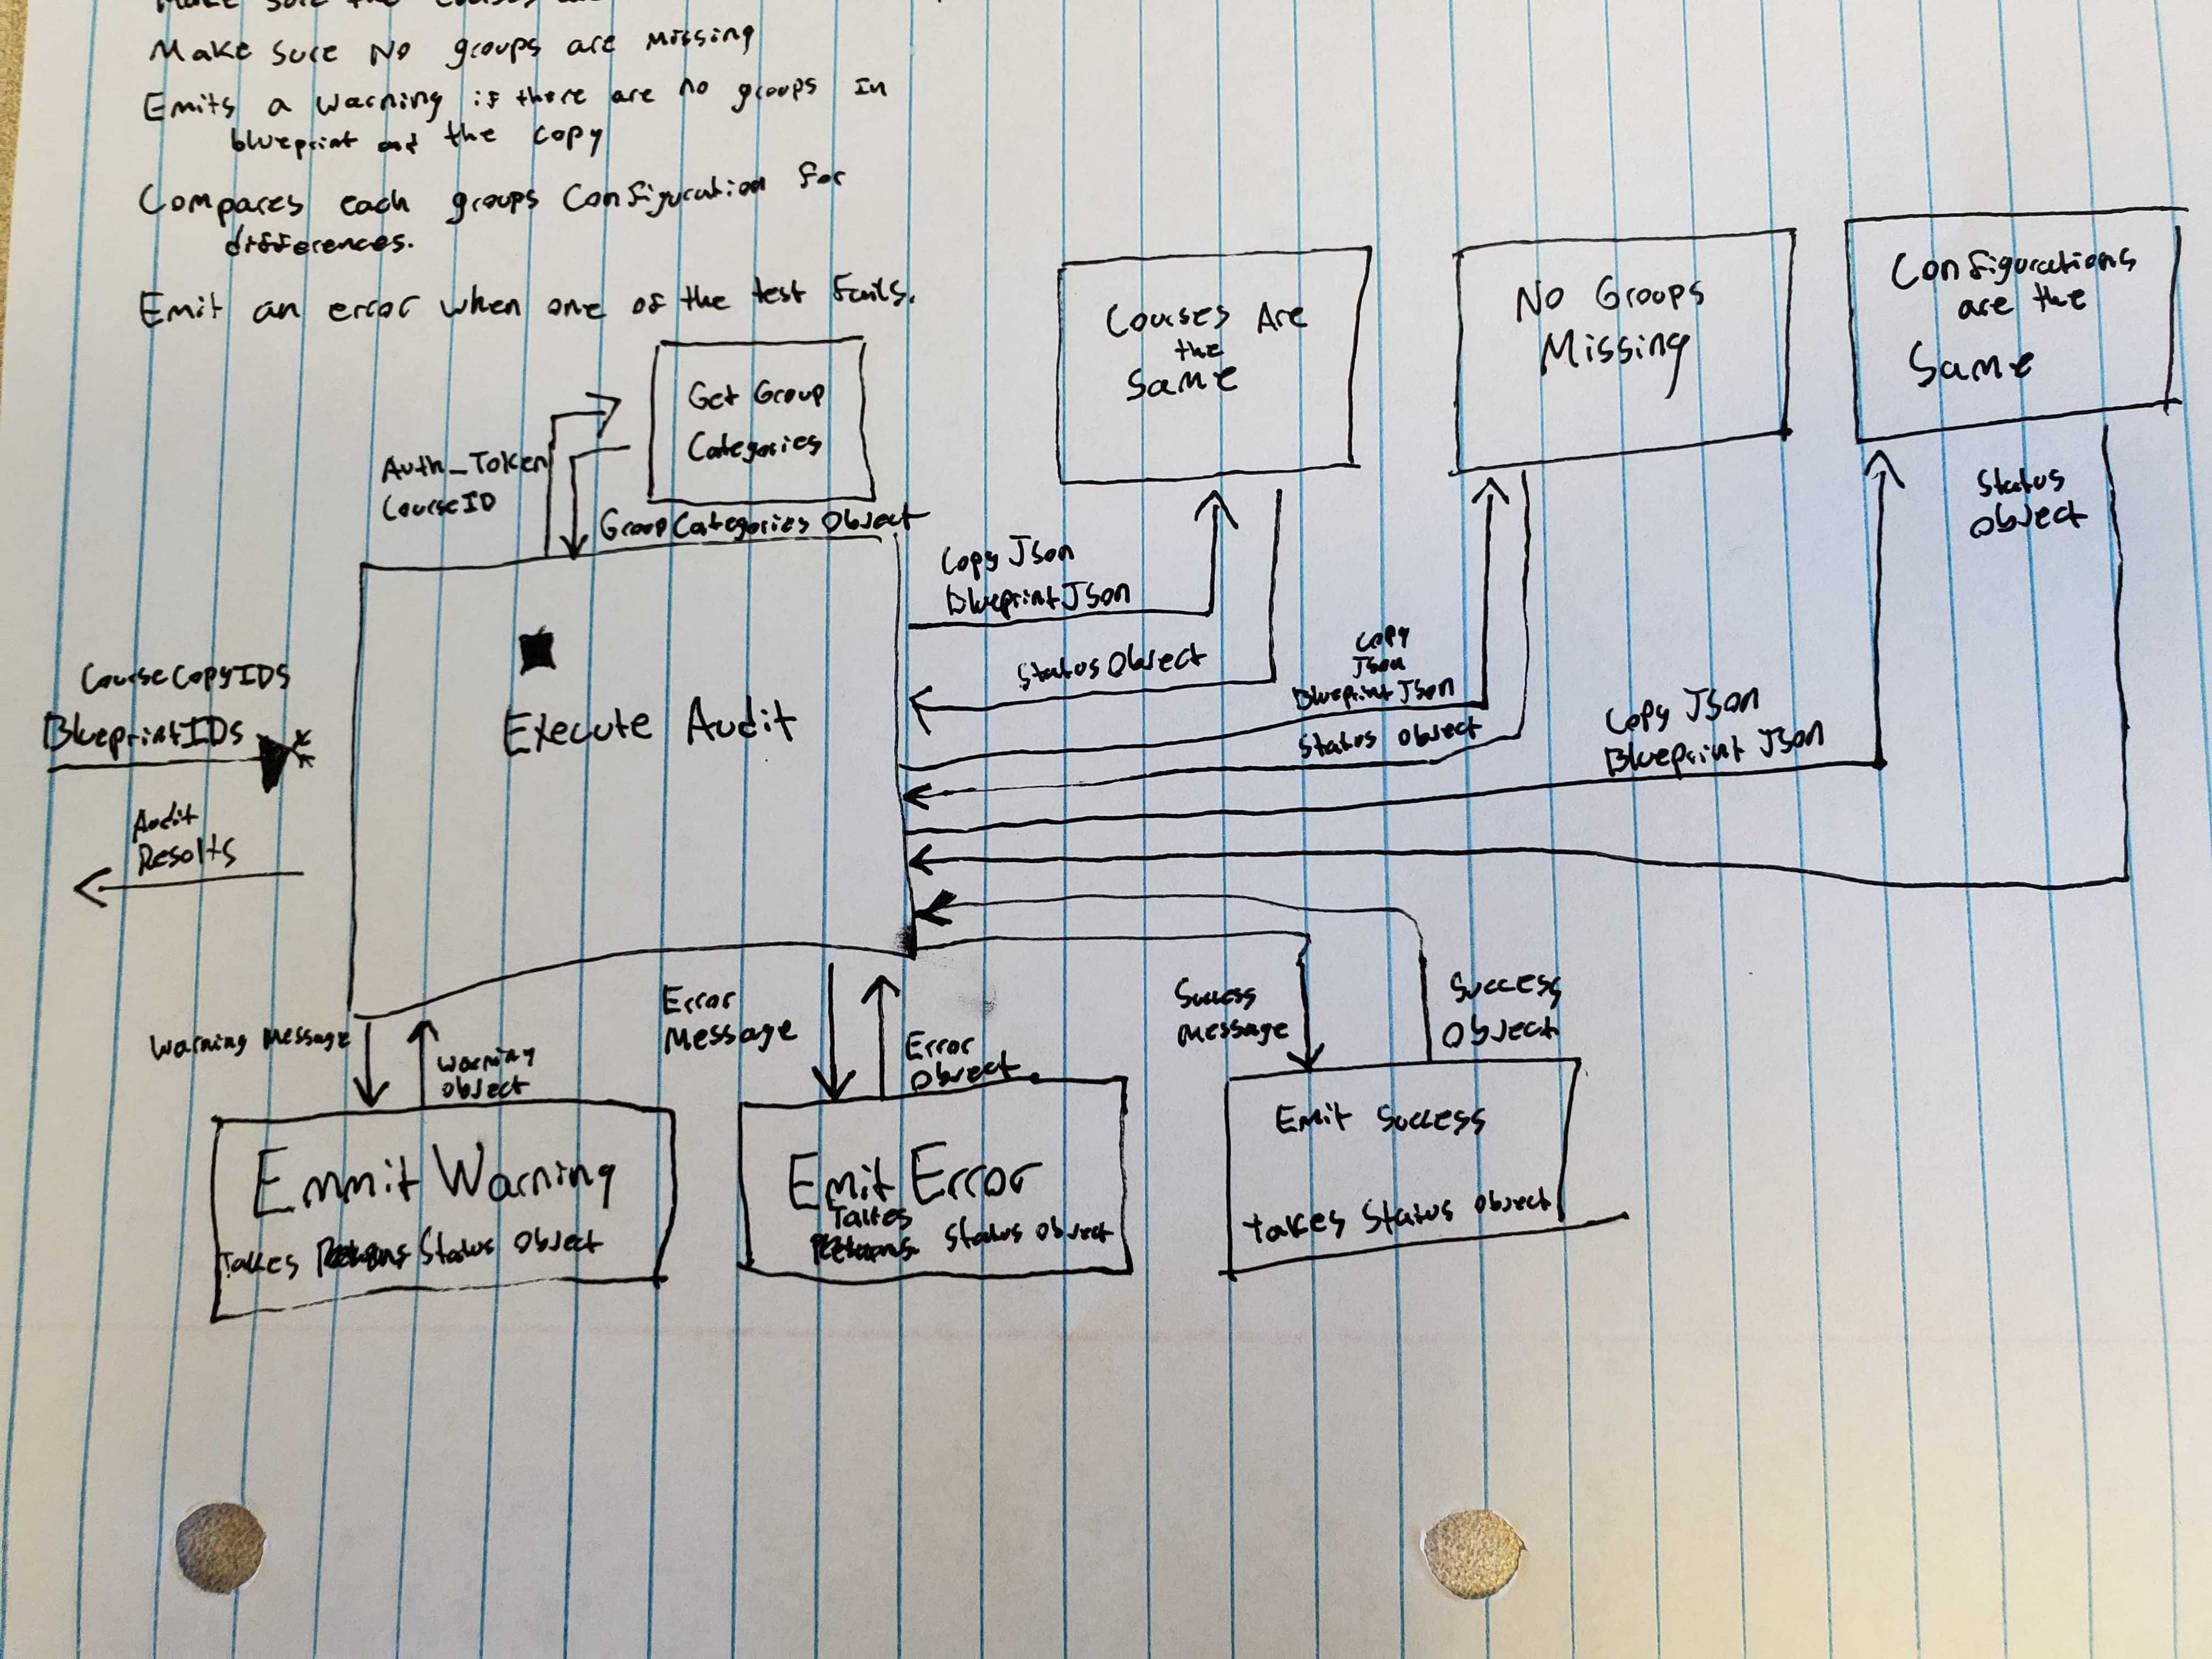 Make sure the courses are
Make sure No groups are missing
Emits a warning if there are no groups in
blueprint and the copy
Compares each groups Configuration for
differences.
Emit an error when one of the test fails.
Get Group
Categories
Auth_Token
CourseID
GroupCategories Object
Courses Are
the
Same
No Groups
Missing
Configurations
are the
Same
Copy Json
Blueprint Json
Status Object
Copy
Json
Blueprint Json
Status Object
Copy Json
Blueprint Json
Status
Object
CourseCopyIDS
BlueprintIDS
Execute Audit
Audit
Results
Warning Message
Warning
Object
Error
Message
Error
Object
Success
Message
Success
Object
Emmit Warning
Takes Status Object
Emit Error
Takes
Status Object
Emit Success
Takes Status Object